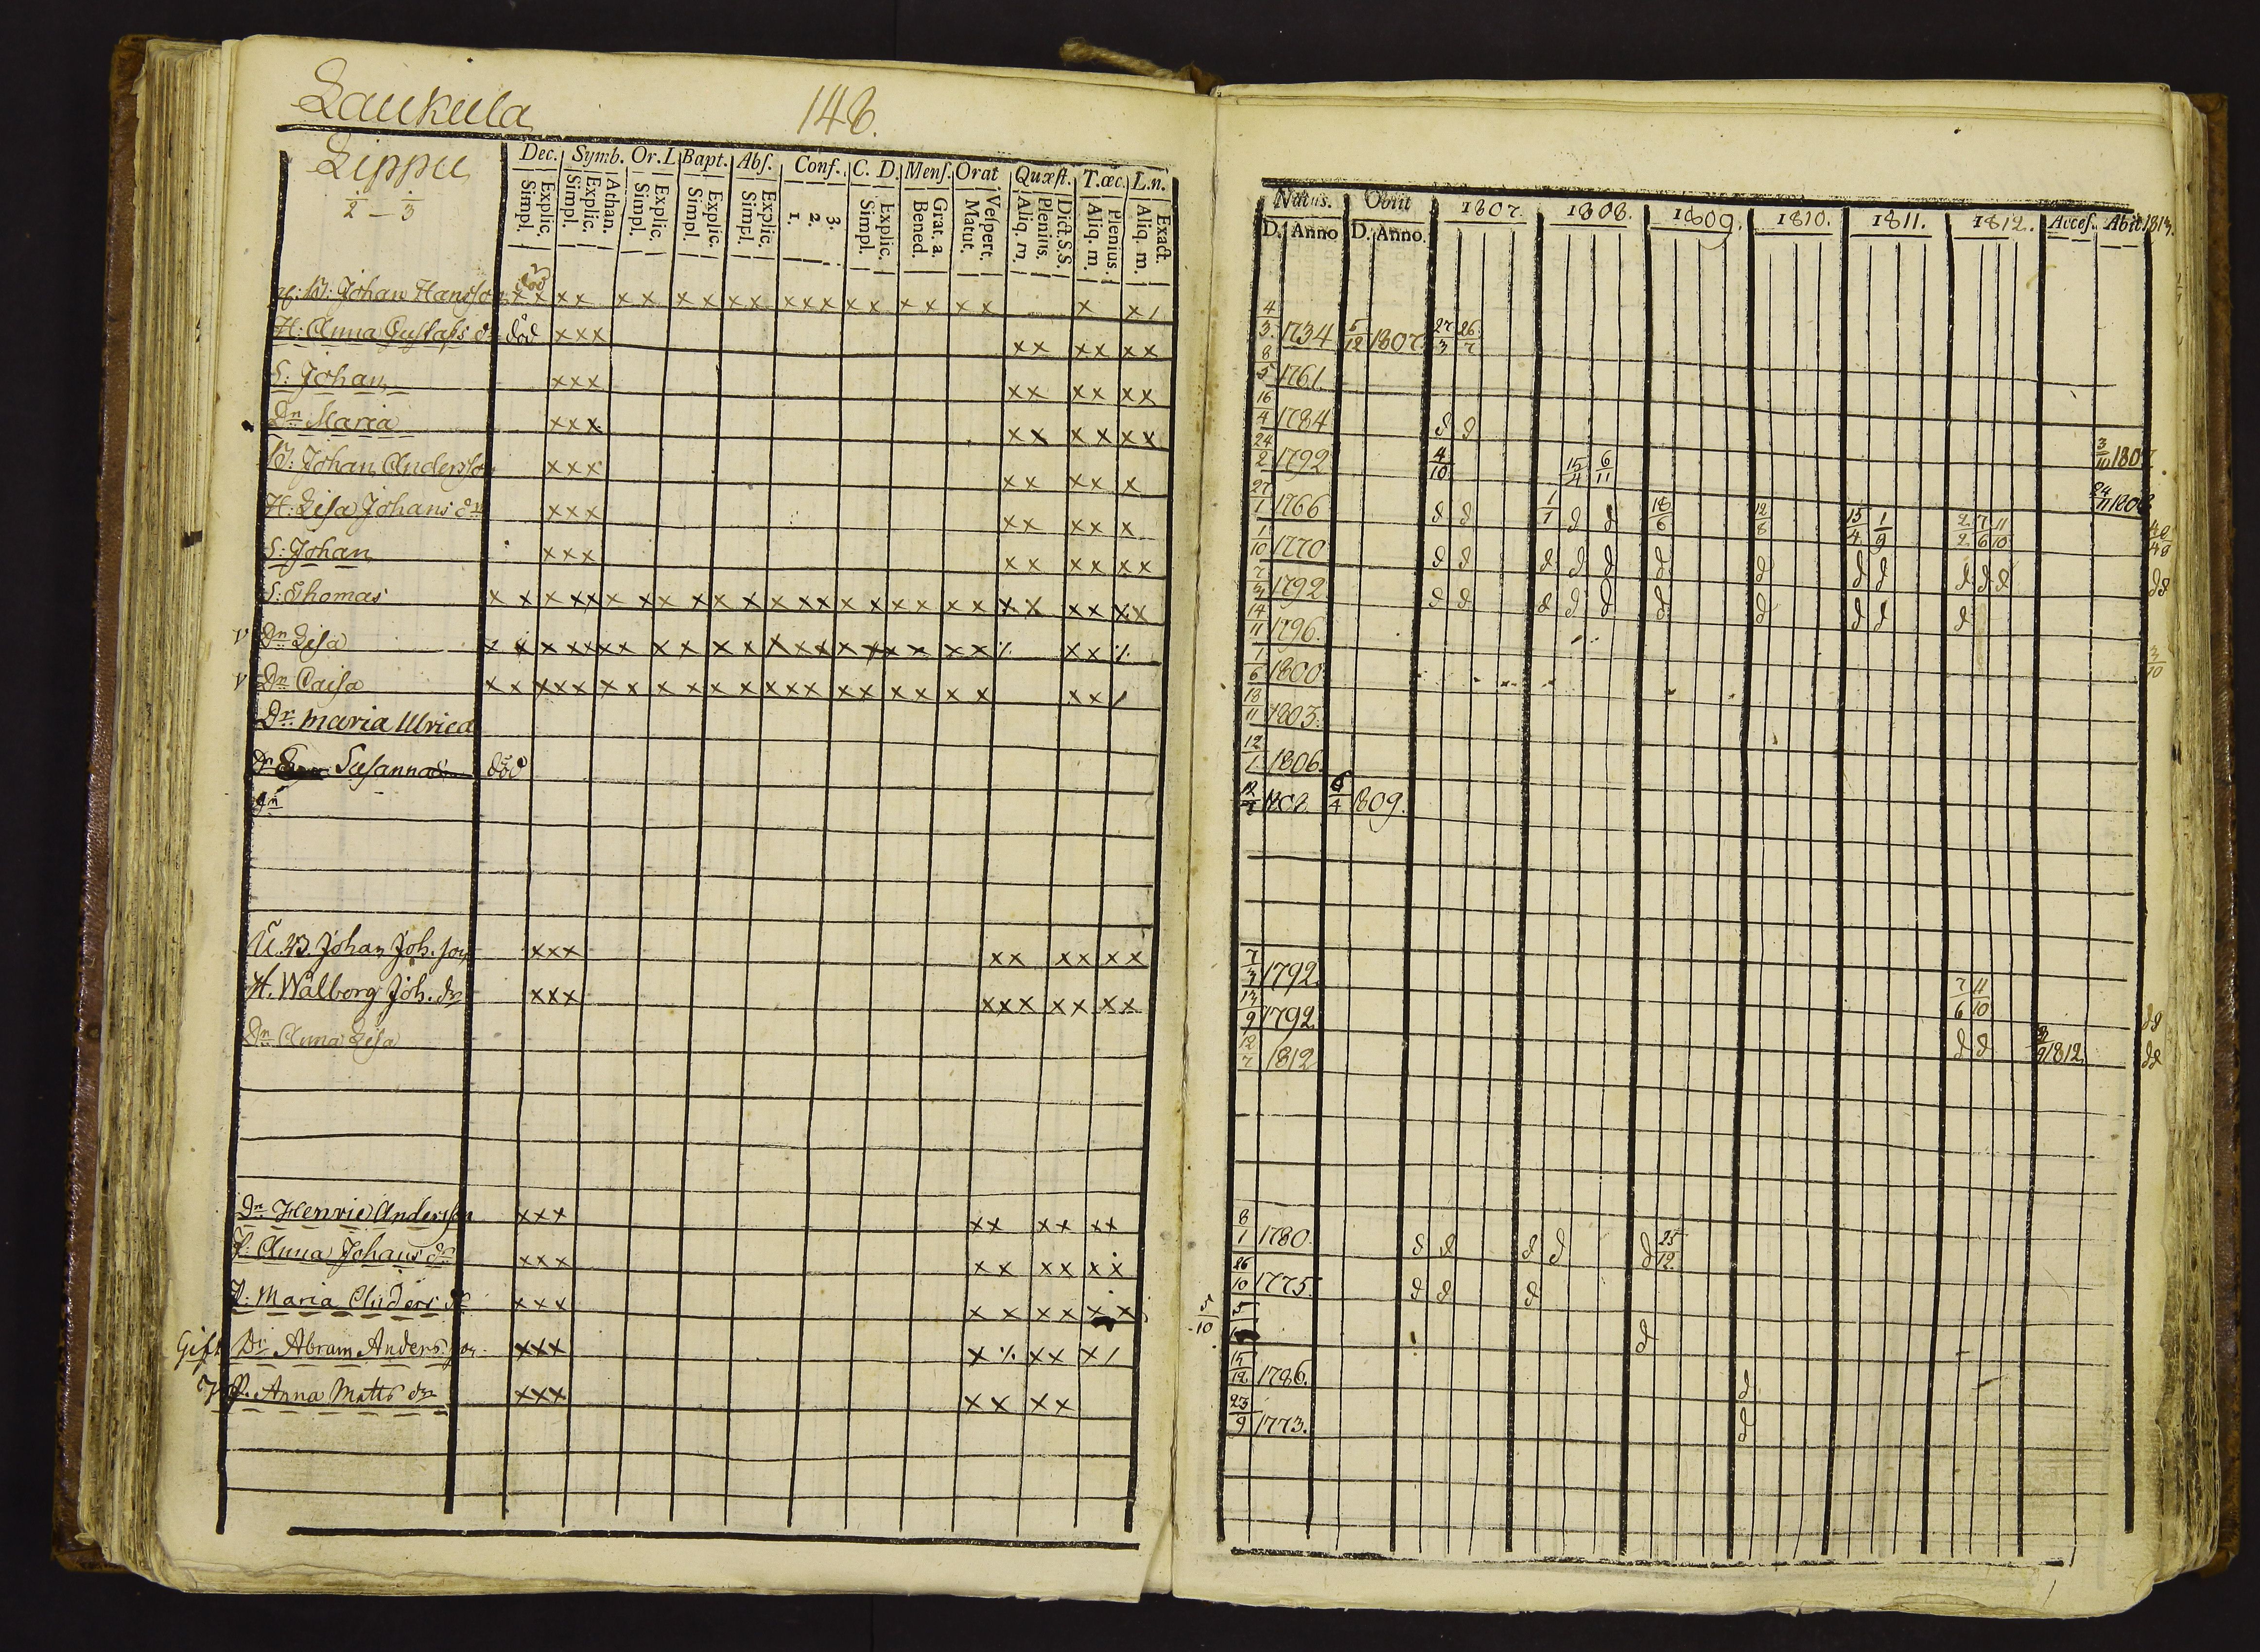 Laukula 148.
Lippu
1/2 – 1/3
Dec. Symb. Or. L. Bapt. Abſ. Conf. C. D. Menſ. Orat Quæſt. T.œc. L.n.
Explic. Simpl. Athan. Explic. Simpl. Explic. Simpl. Explic. Simpl. Explic. Simpl. 3. 2. 1. Explic. Simpl. Grat. a. Bened. Veſpert. Matut. Dict.S.S. Plenius. Aliq. m. Plenius. Aliq. m. Exact. Aliq. m.
B: Johan Hansson död x x x x x x x x x x x x x x x x x x x x x
H: Anna Gustafs dr död xxx xx xx xx
S: Johan xxx xx xx xx
Dr Maria xxx xx xx xx
B: Johan Andersson xxx xx xx x
H: Lisa Johans dr xxx xx xx x
S: Johan xxx xx xx xx
S: Thomas x x x x x x x x x x x x x x x x x x x x x x x x x x x
v Dr Lisa x x x x x x x x x x x x x x x x x x x x x x
v Dr Caisa x x x x x x x x x x x x x x x x x x x x x x
Dr Maria Ulrica
Dr Susanna död
Dr
B Johan Joh. son xxx xx xx xx
H. Walborg Joh. dr xxx xxx xx xx
Dr Anna Lisa
Dr Henric Andersson xxx xx xx xx
P: Anna Johans dr xxx xx xx xx
P: Maria Anders dr xxx xx xx xx
Gift Dr Abram Anders son xxx x xx x
P. Anna Matts dr xxx xx xx
Natus. Obiit 1807. 1808. 1809. 1810. 1811. 1812. Acceſ. Abit 1813.
D. Anno D. Anno.
4/3 1734 5/12 1807 27/3 26/7
8/5 1761
16/4 1784 d d
24/2 1792 4/10 15/4 6/11 3/10 1807
27/1 1766 d d 1/1 d d 18/6 12/8 15/4 1/9 2/2 7/6 11/10 24/11 1808
1/10 1770 d d d d d d d d d d d d
7/3 1792 d d d d d d d d d d
14/11 1796.
1/6 1800 3/10
18/11 1803.
12/1 1806
6/4 1809.
7/3 1792. 7/6 11/10
13/9 1792 d d 1812 d d
12/7 1812 d d
8/1 1780 d d d d d 25/12
26/10 1775. d d d
5/10 d
15/12 1786. d
23/9 1773. d